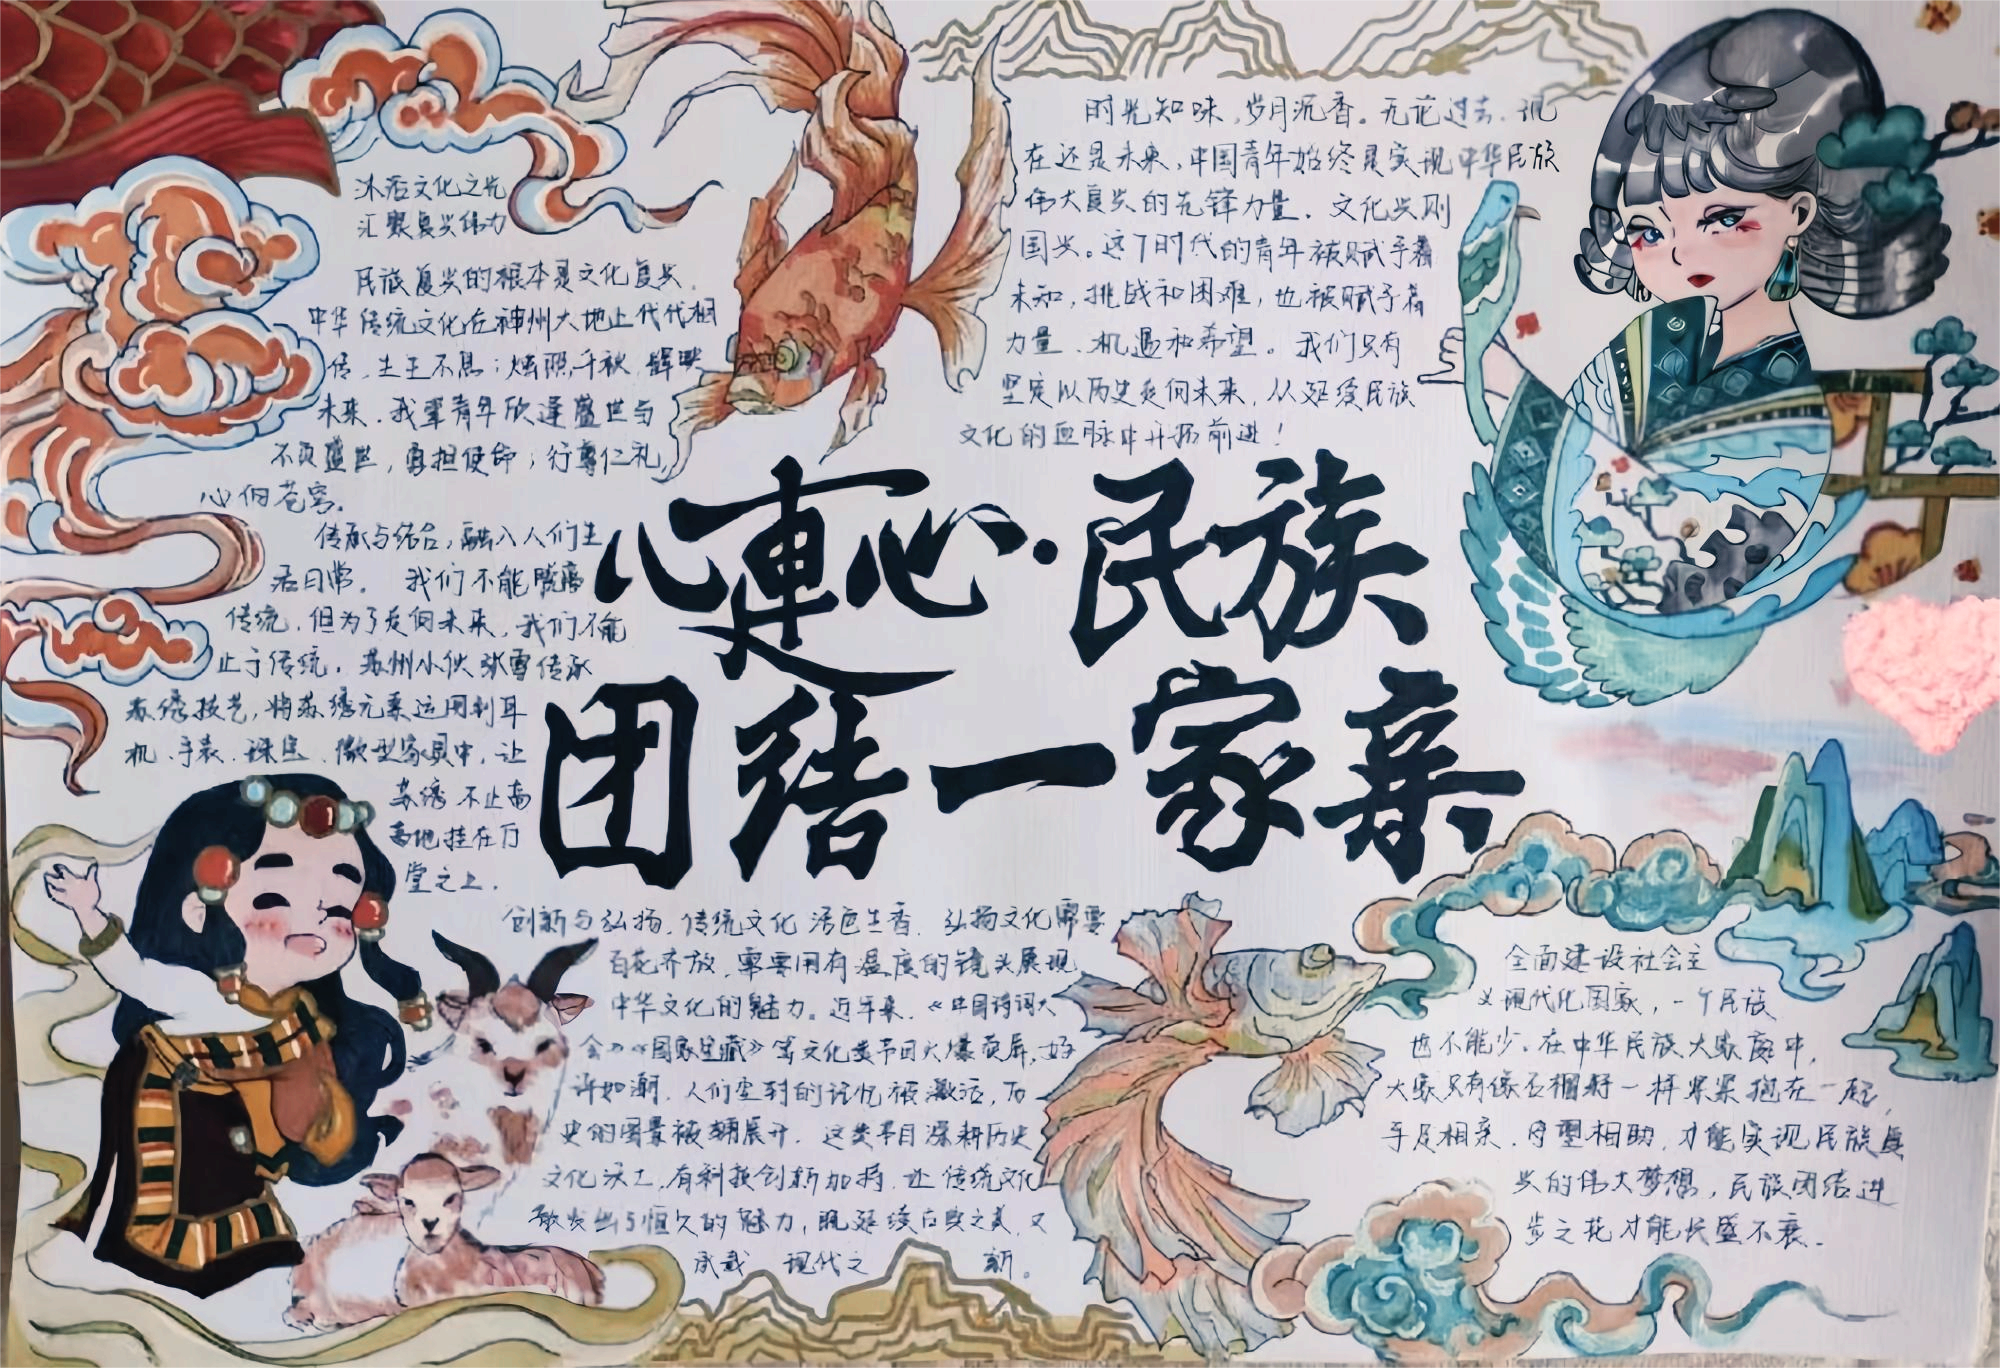 沐浴文化之光
汇聚复兴伟力
民族复兴的根本是文化复兴.
中华传统文化在神州大地上代代相
传.生生不息;烛照千秋,辉映
未来.我辈青年欣逢盛世与
不负盛世,勇担使命;行尊仁礼,
心怀苍穹.
传承与结合,融入人们生
活日常。我们不能脱离
传统.但为了走向未来,我们不能
止于传统.苏州小伙张雪传承
苏绣技艺,将苏绣元素运用到耳
机.手表.珠宝.微型家具中,让
苏绣不止高
高地挂在厅
堂之上.
时光知味,岁月沉香。无论过去.现
在还是未来,中国青年始终是实现中华民族
伟大复兴的先锋力量.文化兴则
国兴。这个时代的青年被赋予着
未知,挑战和困难,也被赋予着
力量.机遇和希望。我们只有
坚定从历史走向未来,从延续民族
文化的血脉中开拓前进!
心連心·民族
团结一家亲
创新与弘扬.传统文化活色生香.弘扬文化需要
百花齐放,需要用有温度的镜头展现
中华文化的魅力。近年来.《中国诗词大
会》《国家宝藏》等文化类节目火爆荧屏,好
评如潮.人们尘封的记忆被激活,历
史的图景被铺展开.这类节目深耕历史
文化沃土,有科技创新加持.让传统文化
散发出与恒久的魅力,既延续古典之美.又
承载 现代之 新。
全面建设社会主
义现代化国家,一个民族
也不能少.在中华民族大家庭中,
大家只有像石榴籽一样紧紧抱在一起,
手足相亲.守望相助,才能实现民族复
兴的伟大梦想,民族团结进
步之花才能长盛不衰.